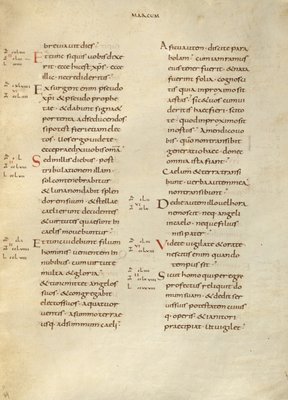 MARCUM
breviavit dies
Et tunc siquis vobis dixe
rit · ecce hic est xps · ecce
illic · ne credideritis
Exsurgent enim pseudo
xpi & pseudo prophe
tae · & dabunt signa &
portenta · ad seducendos
si potest fieri etiam elec
tos · Vos ergo uidete
ecce praedixi uobis omnia
Sed in illis diebus · post
tribulationem illam
sol contenebrabitur
& luna non dabit splen
dorem suum · & stellae
caeli erunt decidentes
& uirtutes quae sunt in
caelis mouebuntur
Et tunc uidebunt filium
hominis uenientem in
nubibus cum uirtute
multa & gloria
& tunc mittet angelos
suos · & congregabit
electos suos · a quattuor
uentis · a summo terrae
usq· ad summum caeli
A ficu autem discite para
bolam · cum iam ramus
eius tener fuerit · & nata
fuerint folia · cognosci
tis quia in proximo sit
aestas · sic & uos cum ui
deritis haec fieri · scito
te quod in proximo sit
in ostiis · Amen dico uo
bis · quoniam non transibit
generatio haec · donec
omnia ista fiant
Caelum & terra transi
bunt · uerba autem mea
non transibunt
De die autem illo uel hora
nemo scit · neq· angeli
in caelo · neque filius
nisi pater
Videte uigilate & orate
nescitis enim quando
tempus sit
Sicut homo qui peregre
profectus reliquit do
mum suam · & dedit ser
uis suis potestatem cuius
q· operis · & ianitori
praecipiat ut uigilet